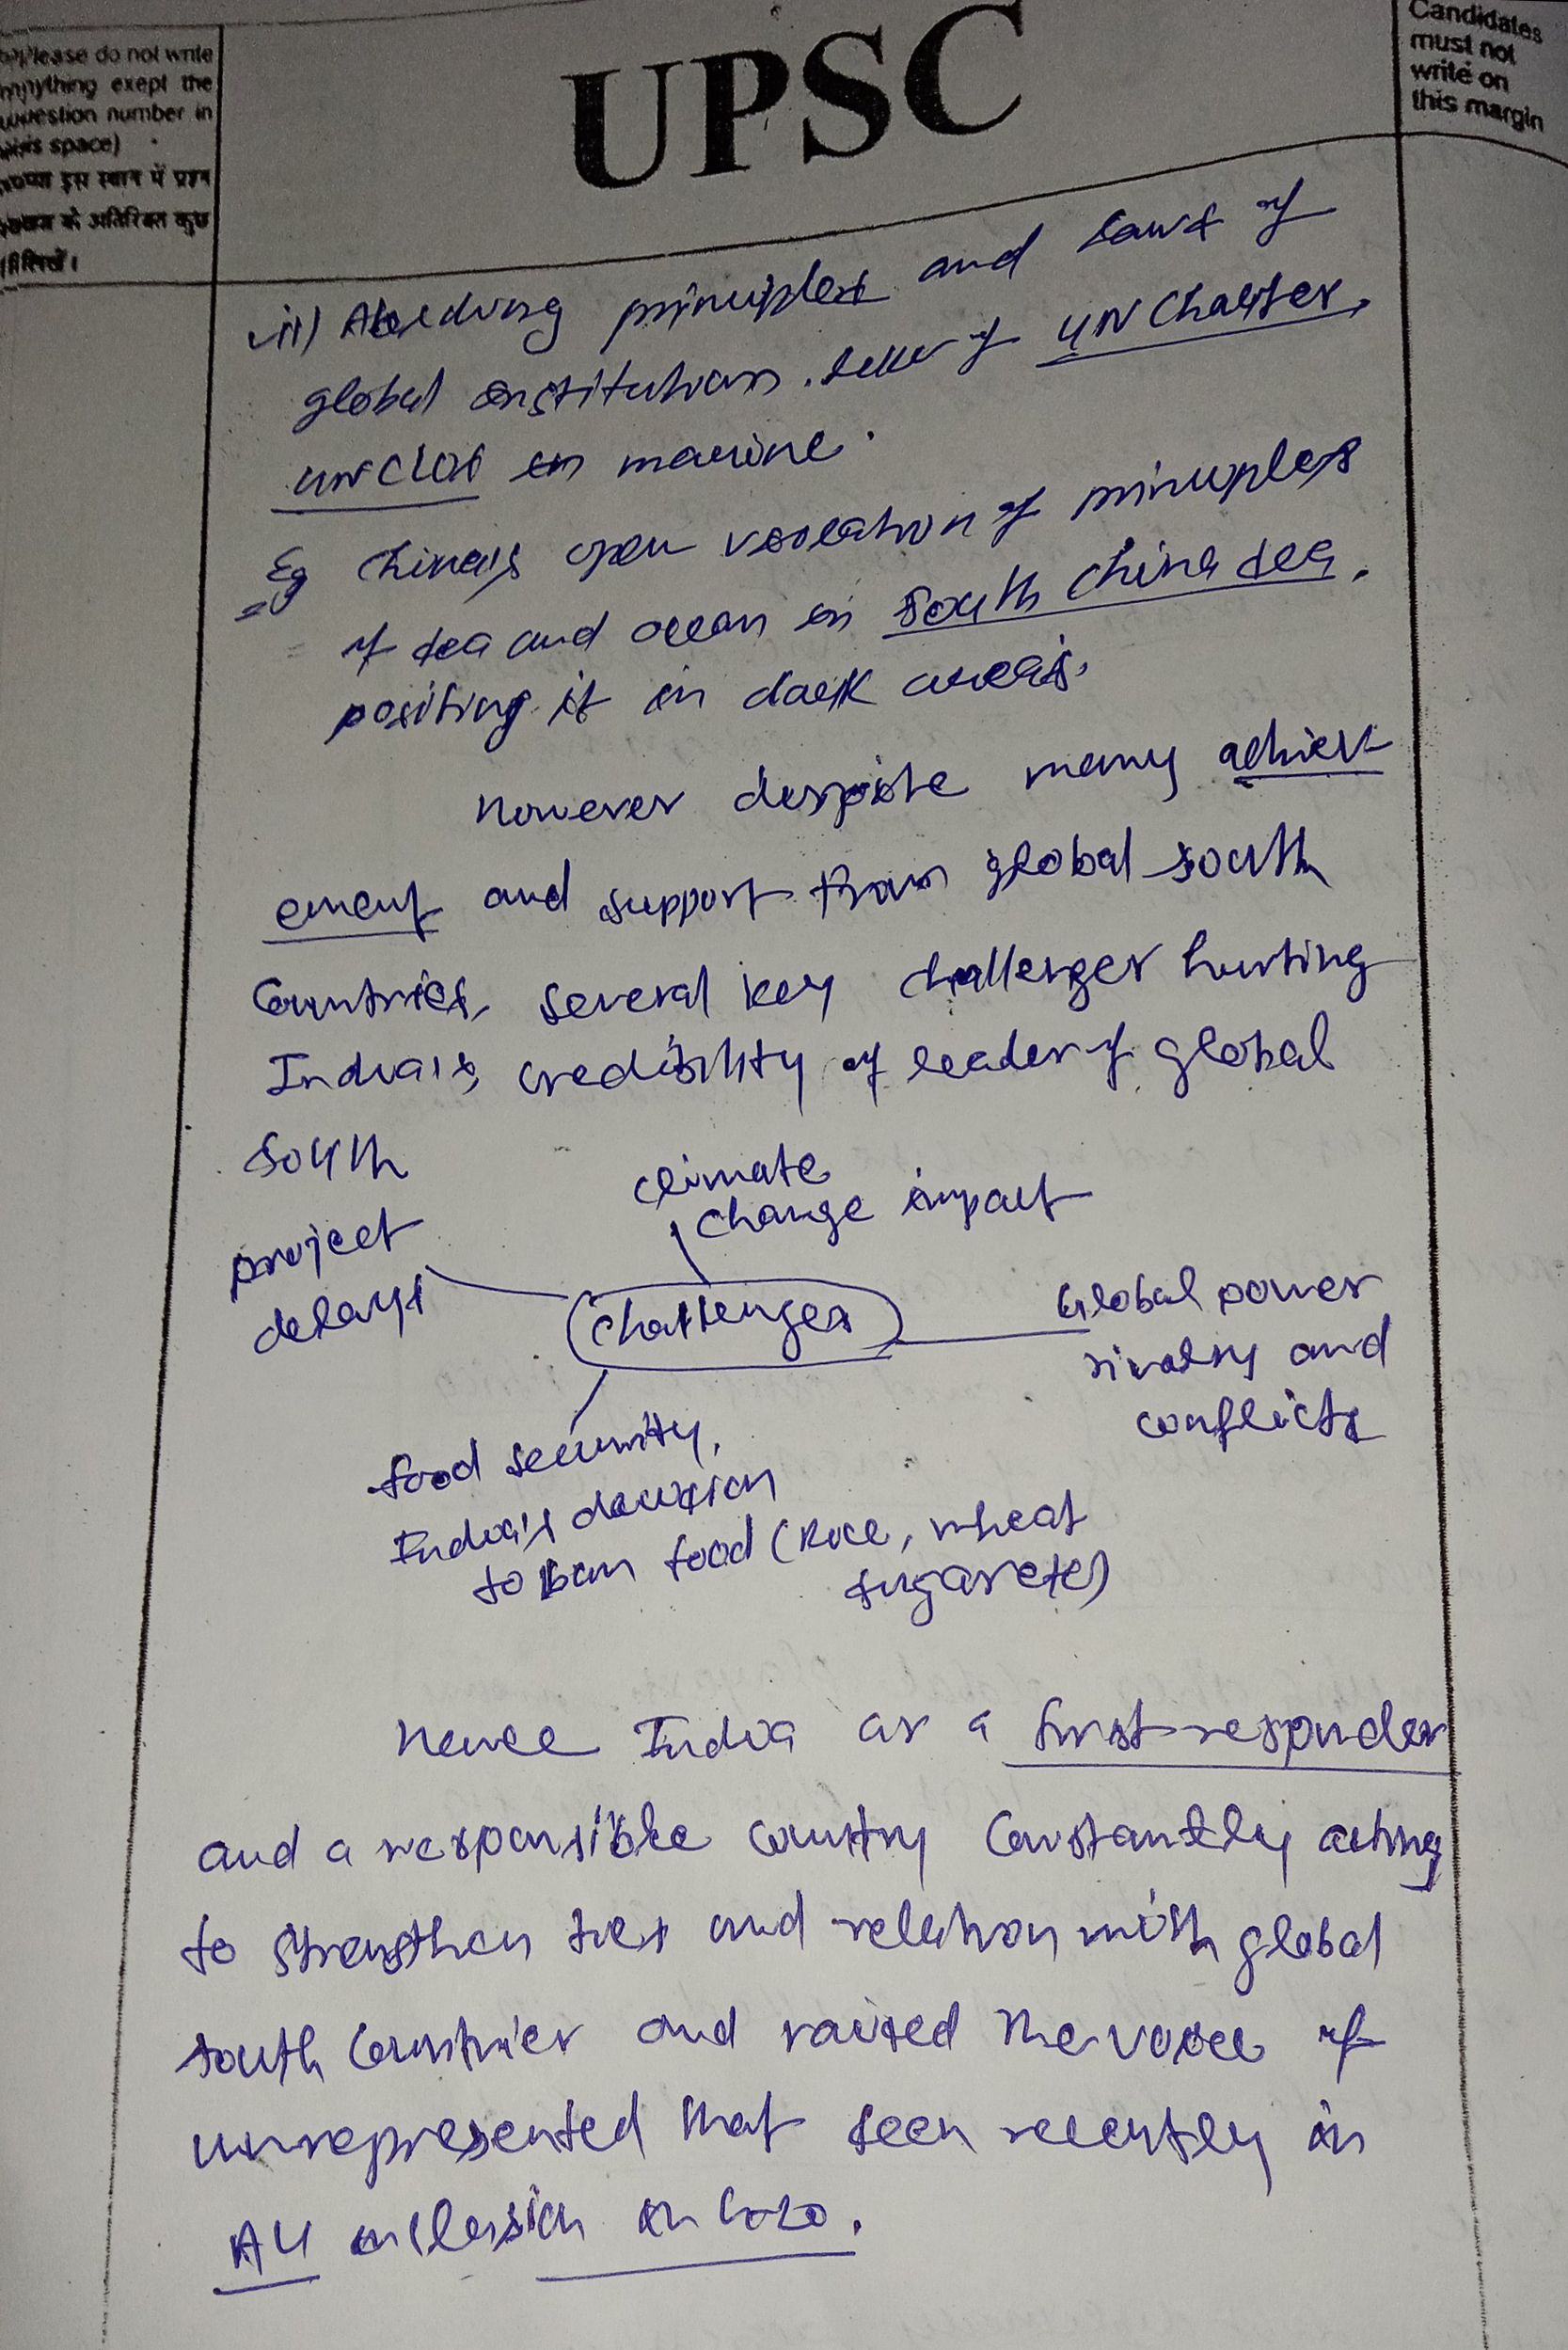 Please do not write
anything exept the
question number in
this space)
कृपया इस स्थान में प्रश्न
के अतिरिक्त कुछ
लिखें।
UPSC
Candidates
must not
write on
this margin
vii) Abiding principles and laws of
global institutions. like of UN Charter,
UNCLOS in marine.
Eg China's open violation of principles
of sea and ocean in South China Sea.
positing it in dark areas.
However despite many achiev
ement and support from global south
Countries, several key challenges hurting
India's credibility of leader of global
South
climate
change impact
project
delays
Challenges
Global power
rivalry and
conflicts
food security,
India's decision
to ban food (Rice, wheat
sugar etc)
Hence India as a first responder
and a responsible country constantly acting
to strengthen ties and relation with global
south countries and raised the voice of
unrepresented that seen recently in
AU inclusion in G-20.